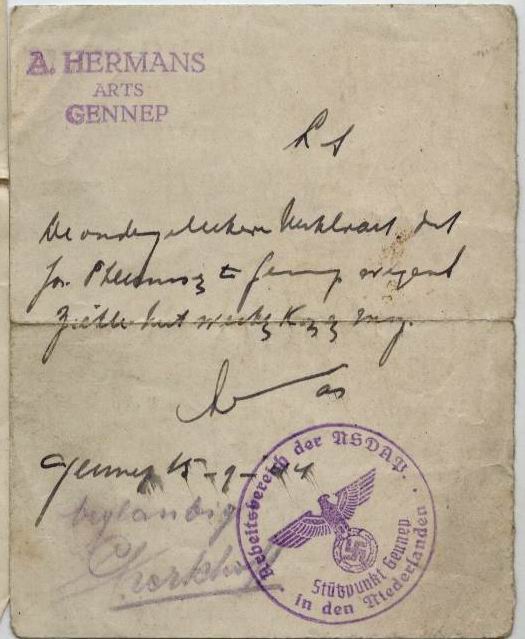 A. HERMANS
ARTS
GENNEP
L S
De ondergeteekende verklaart dat
Jos. te Gennep wegens
ziekte niet werken mag.
Gennep 15-9-'44
beglaubigt
Arbeitsbereich der NSDAP.
Stützpunkt Gennep
in den Niederlanden